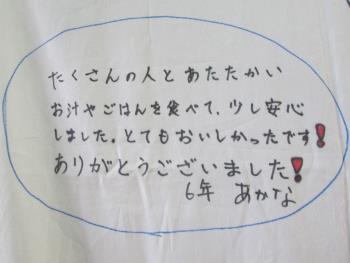 たくさんの人とあたたかい
お汁やごはんを食べて、少し安心
しました。とてもおいしかったです!
ありがとうございました!
6年 あかな